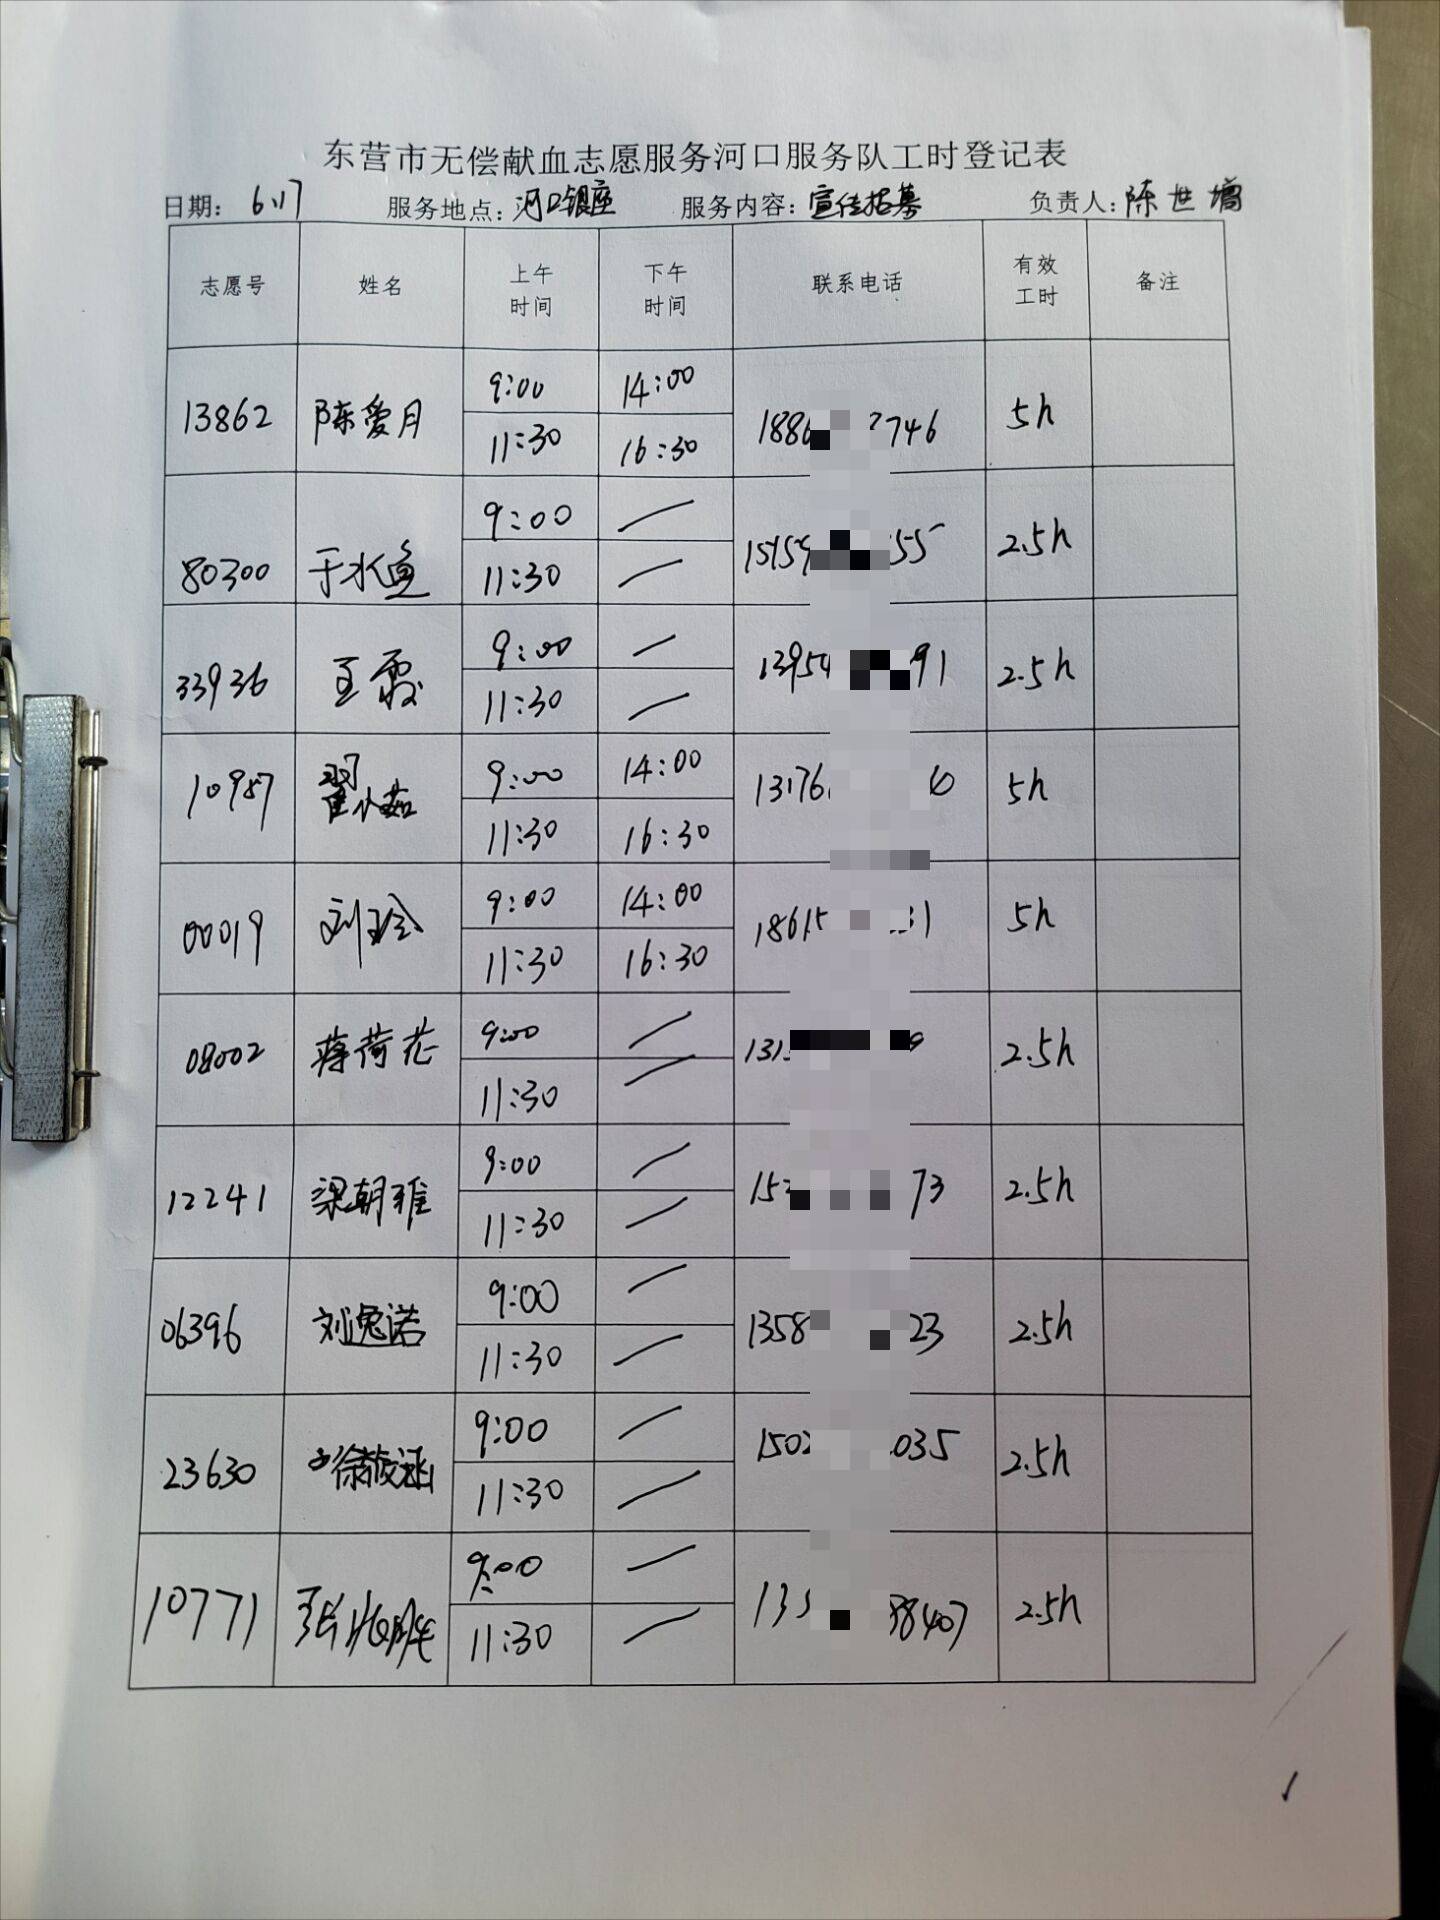 东营市无偿献血志愿服务河口服务队工时登记表
日期: 6.17 服务地点: 河口银座 服务内容: 宣传招募 负责人: 陈世增
志愿号 姓名 上午时间 下午时间 联系电话 有效工时 备注
13862 陈爱月 9:00 14:00 1886 2746 5h
11:30 16:30
80300 于水鱼 9:00 — 15159 55 2.5h
11:30 —
33936 王霞 9:00 — 13954 91 2.5h
11:30 —
10987 翟小茹 9:00 14:00 13176 5h
11:30 16:30
00019 刘玲 9:00 14:00 18615 31 5h
11:30 16:30
08002 蒋荷花 9:00 — 1315 9 2.5h
11:30 —
12241 梁朝雅 9:00 — 152 73 2.5h
11:30 —
06396 刘逸诺 9:00 — 1358 23 2.5h
11:30 —
23630 徐薇涵 9:00 — 1502 035 2.5h
11:30 —
10771 张 9:00 — 135 38407 2.5h
11:30 —